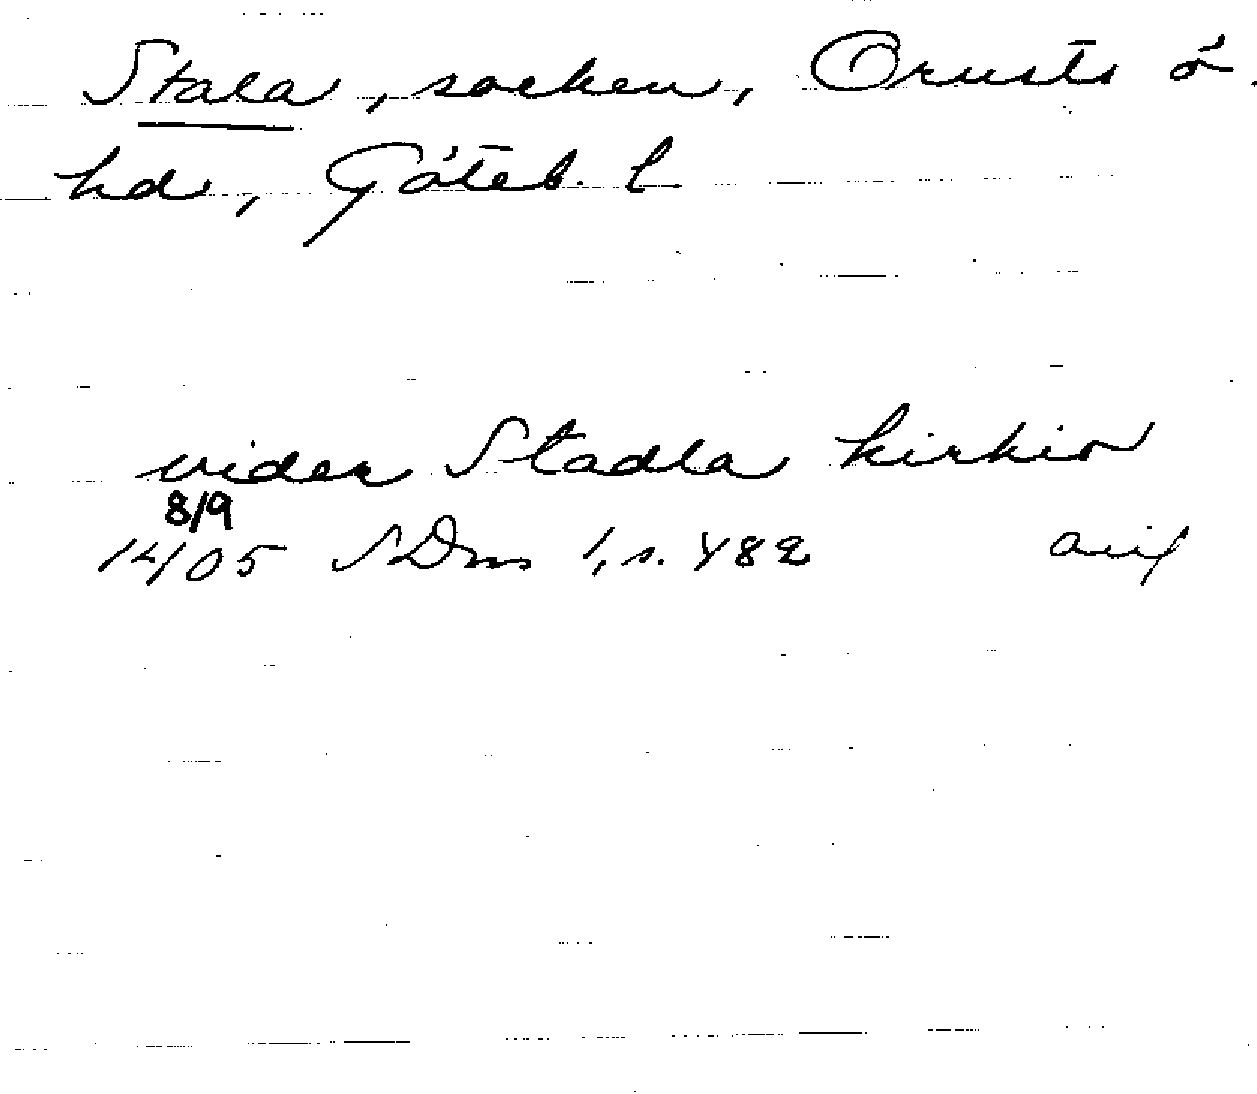 Stala, socken, Orusts ö.
hd, Göteb. l
vider Stadla kirkio
8/9
1405 SDns 1, s. 482